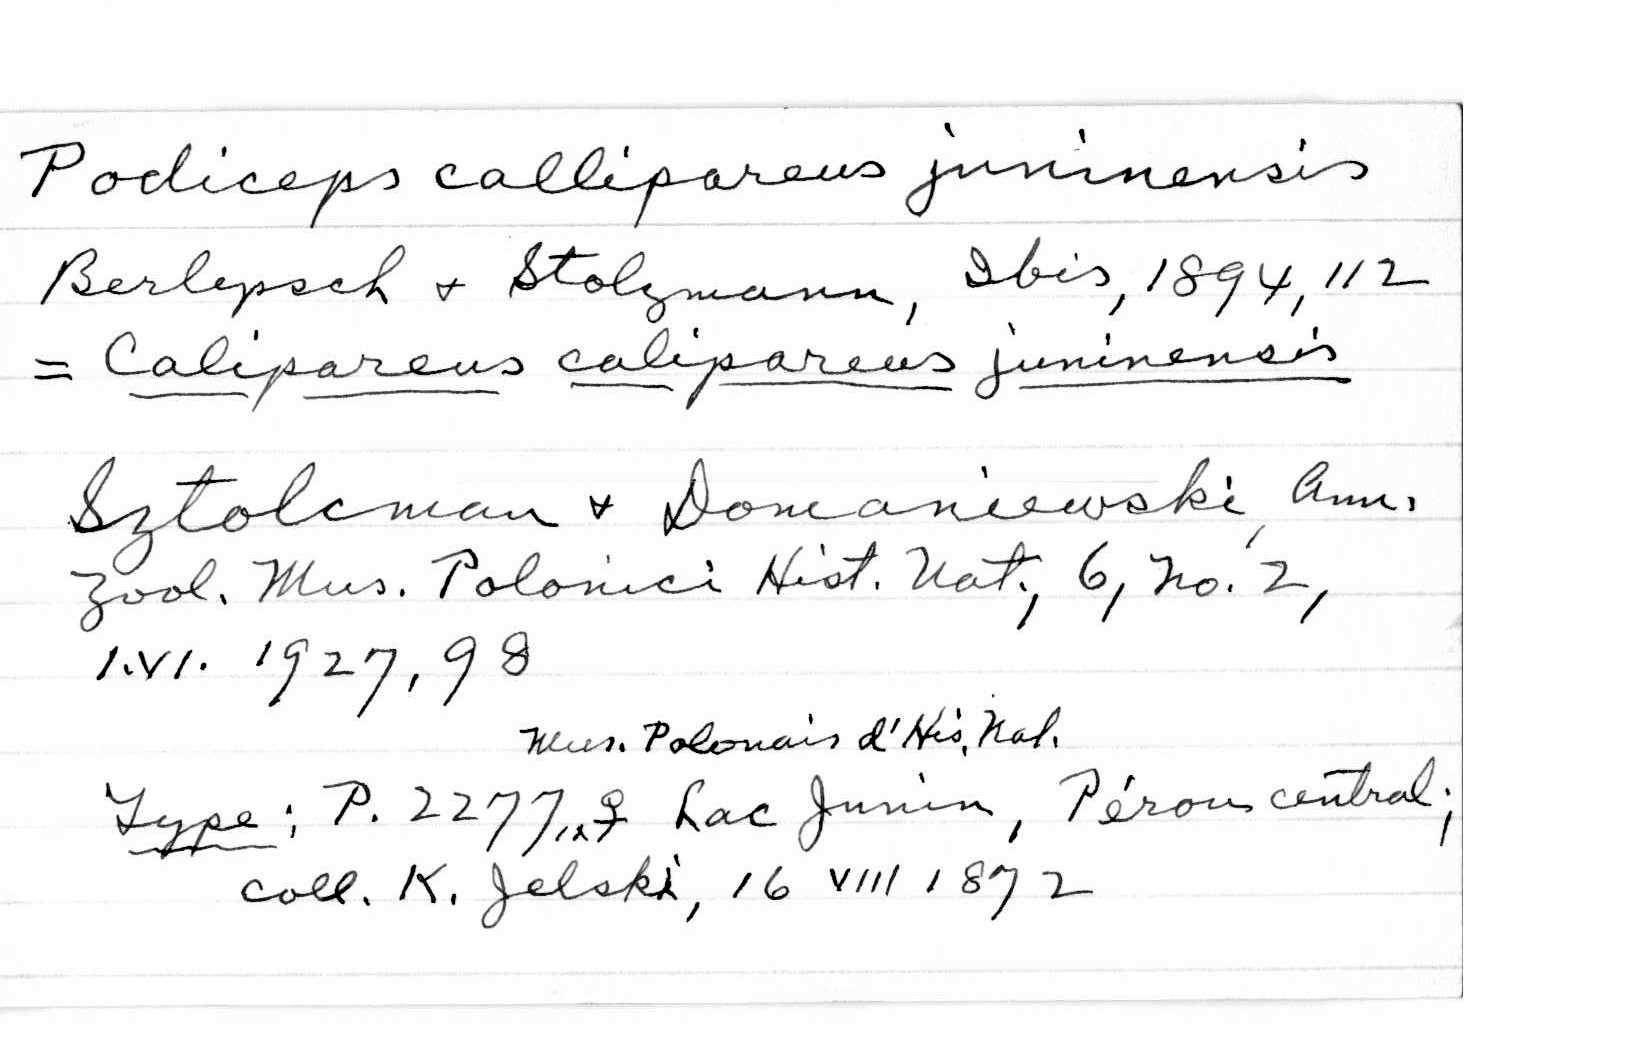 Podiceps callipareus juninensis
Berlepsch & Stolzmann, Ibis, 1894, 112
= Calipareus calipareus juninensis
Sztolcman & Domaniewski, Ann.
Zool. Mus. Polonici Hist. Nat., 6, No. 2,
1.VI. 1927, 98
Mus. Polonais d'His. Nat.
Type: P. 2277, ♀ Lac Junin, Pérou central;
coll. K. Jelski, 16 VIII 1872